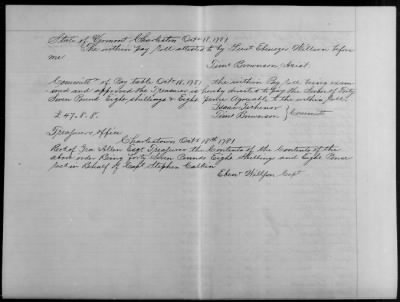 State of Vermont Charleston Oct 18, 1781
The within pay Roll attested to by Lieut Ebenezer Willson before
me
Timo Brownson Assist
Committee of Pay table Octr 18, 1781 the within Pay Roll being exam
ined and approved the Treasurer is hereby directed to pay the Sum of Forty
Seven Pound Eight shillings & Eight pence Agreeable to the within Roll
Isaac Tichenor
£47.8.8. Timo Brownson } Committe
Treasurers Office
Charlestown Octr 18th 1781
Recd of Ira Allen Esqr Treasurer the Contents of the Contents of the
above order Being forty Seven Pounds Eight Shillings and Eight Pence
Recd in Behalf of Capt Stephen Calkin
Ebenr Willson Capt